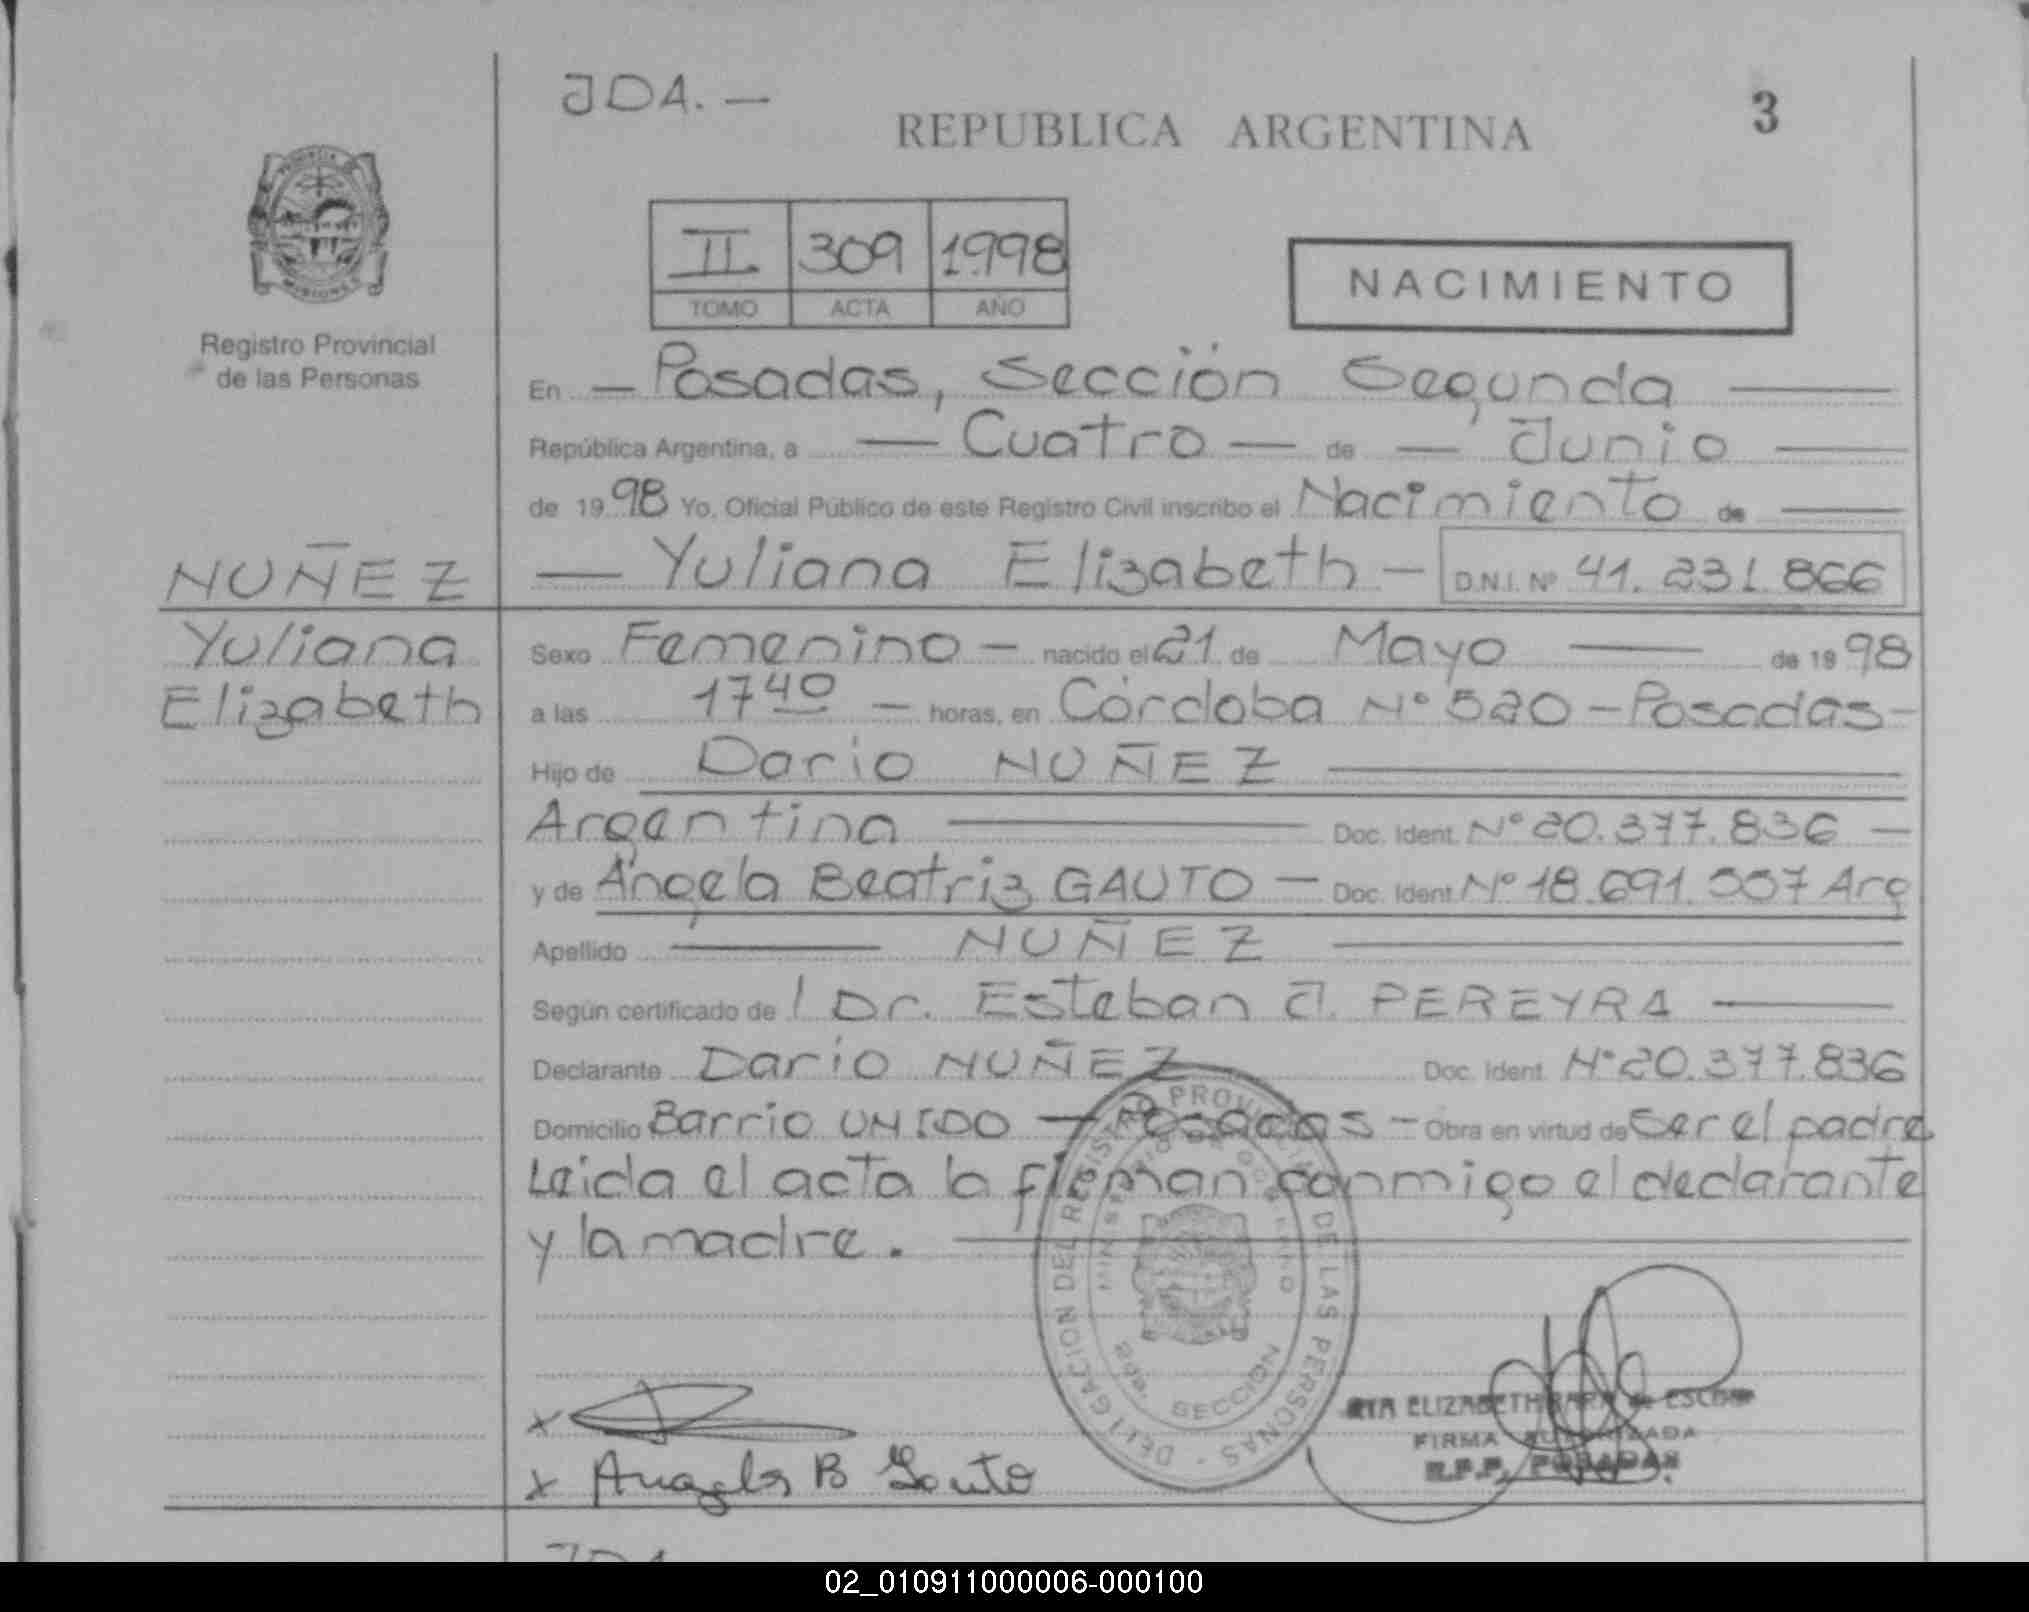 JDA. —
REPUBLICA ARGENTINA
3
II 309 1998
TOMO ACTA AÑO
NACIMIENTO
Registro Provincial
de las Personas
En — Posadas, Sección Segunda —
República Argentina, a — Cuatro — de — Junio —
de 1998 Yo, Oficial Público de este Registro Civil inscribo el Nacimiento de —
NUÑEZ
Yuliana
Elizabeth
— Yuliana Elizabeth — D.N.I. Nº 41.231.866
Sexo Femenino — nacido el 21 de Mayo — de 1998
a las 17 40 — horas, en Córdoba Nº 520 – Posadas –
Hijo de Dario NUÑEZ —
Argentina — Doc. Ident. Nº 20.377.836 —
y de Angela Beatriz GAUTO — Doc. Ident. Nº 18.691.557 Arg
Apellido — NUÑEZ —
Según certificado de Dr. Esteban J. PEREYRA —
Declarante Dario NUÑEZ Doc. Ident. Nº 20.377.836
Domicilio Barrio UNIDO — Posadas — Obra en virtud de Ser el padre
Leida el acta la firman conmigo el declarante
y la madre. —
DELEGACION DEL REGISTRO PROVINCIAL DE LAS PERSONAS
MINISTERIO DE GOBIERNO
2da. SECCION
x
x Angela B Gauto
ELIZABETH
FIRMA AUTORIZADA
R.P.P. POSADAS.
JDA
02_010911000006-000100